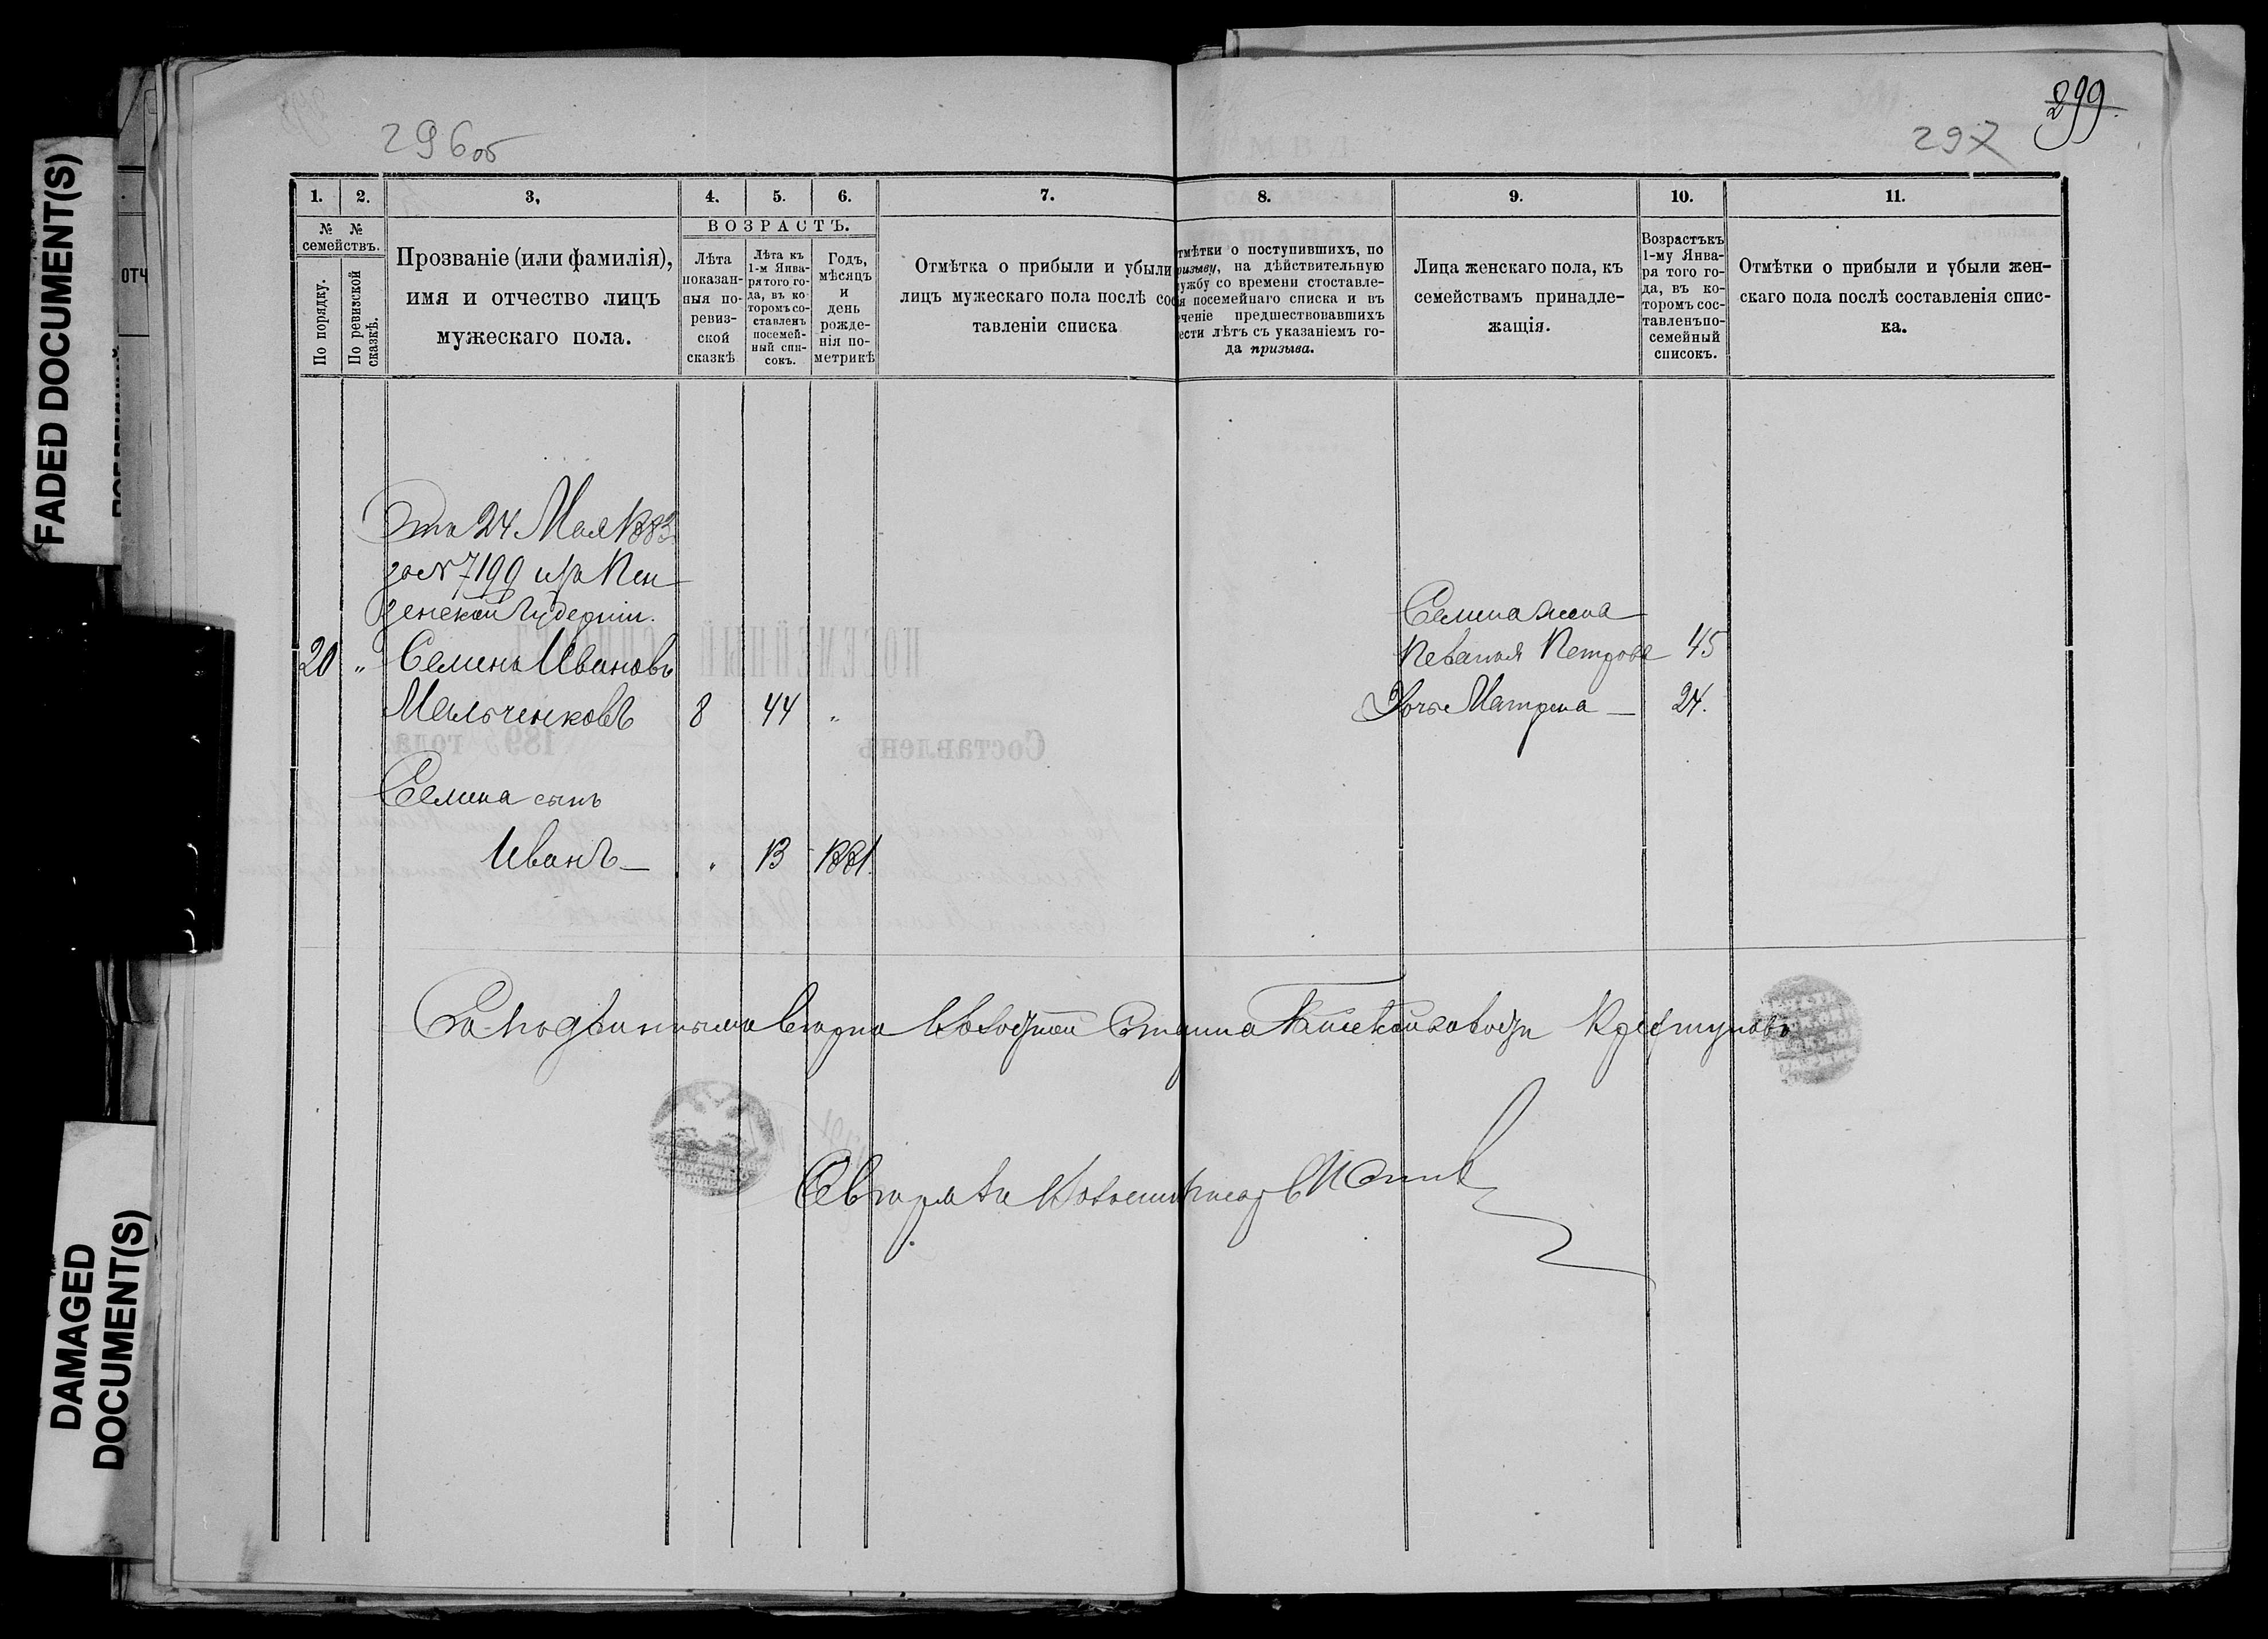 FADED DOCUMENT(S)
DAMAGED
DOCUMENT(S)
ОТЧ
296об
297
299
1.
2.
3,
4.
5.
6.
7.
8.
9.
10.
11.
№ №
семействъ.
По порядку.
По ревизской
сказкѣ.
Прозваніе (или фамилія),
имя и отчество лицъ
мужескаго пола.
ВОЗРАСТЪ.
Лѣта
показан-
ныя по-
ревиз-
ской
сказкѣ
Лѣта къ
1-м Янва-
ря того го-
да, въ ко-
торомъ со-
ставленъ
посемей-
ный спи-
сокъ.
Годъ,
мѣсяцъ
и
день
рожде-
нія по-
метрикѣ
Отмѣтка о прибыли и убыли
лицъ мужескаго пола послѣ со-
тавленіи списка
тмѣтки о поступившихъ, по
ризыву, на дѣйствительную
ужбу со времени стоставле-
я посемейнаго списка и въ
ченіе предшествовавшихъ
ести лѣтъ съ указаніемъ го-
да призыва.
Лица женскаго пола, къ
семействамъ принадле-
жащія.
Возрастъкъ
1-му Янва-
ря того го-
да, въ ко-
торомъ сос-
тавленъпо-
семейный
списокъ.
Отмѣтки о прибыли и убыли жен-
скаго пола послѣ составленія спис-
ка.
24 Мая 1883
за № 7199 из Пен
зенской Губерніи.
20 " Семенъ Ивановъ
Мальченковъ 8 44 "
Семена сынъ
Иванъ — " 13 1881.
Семена жена
Петрова 45
Дочь Матрена — 24.
Съ подлиннымъ верно Волостной Старшина
Сверялъ Волостной писарь